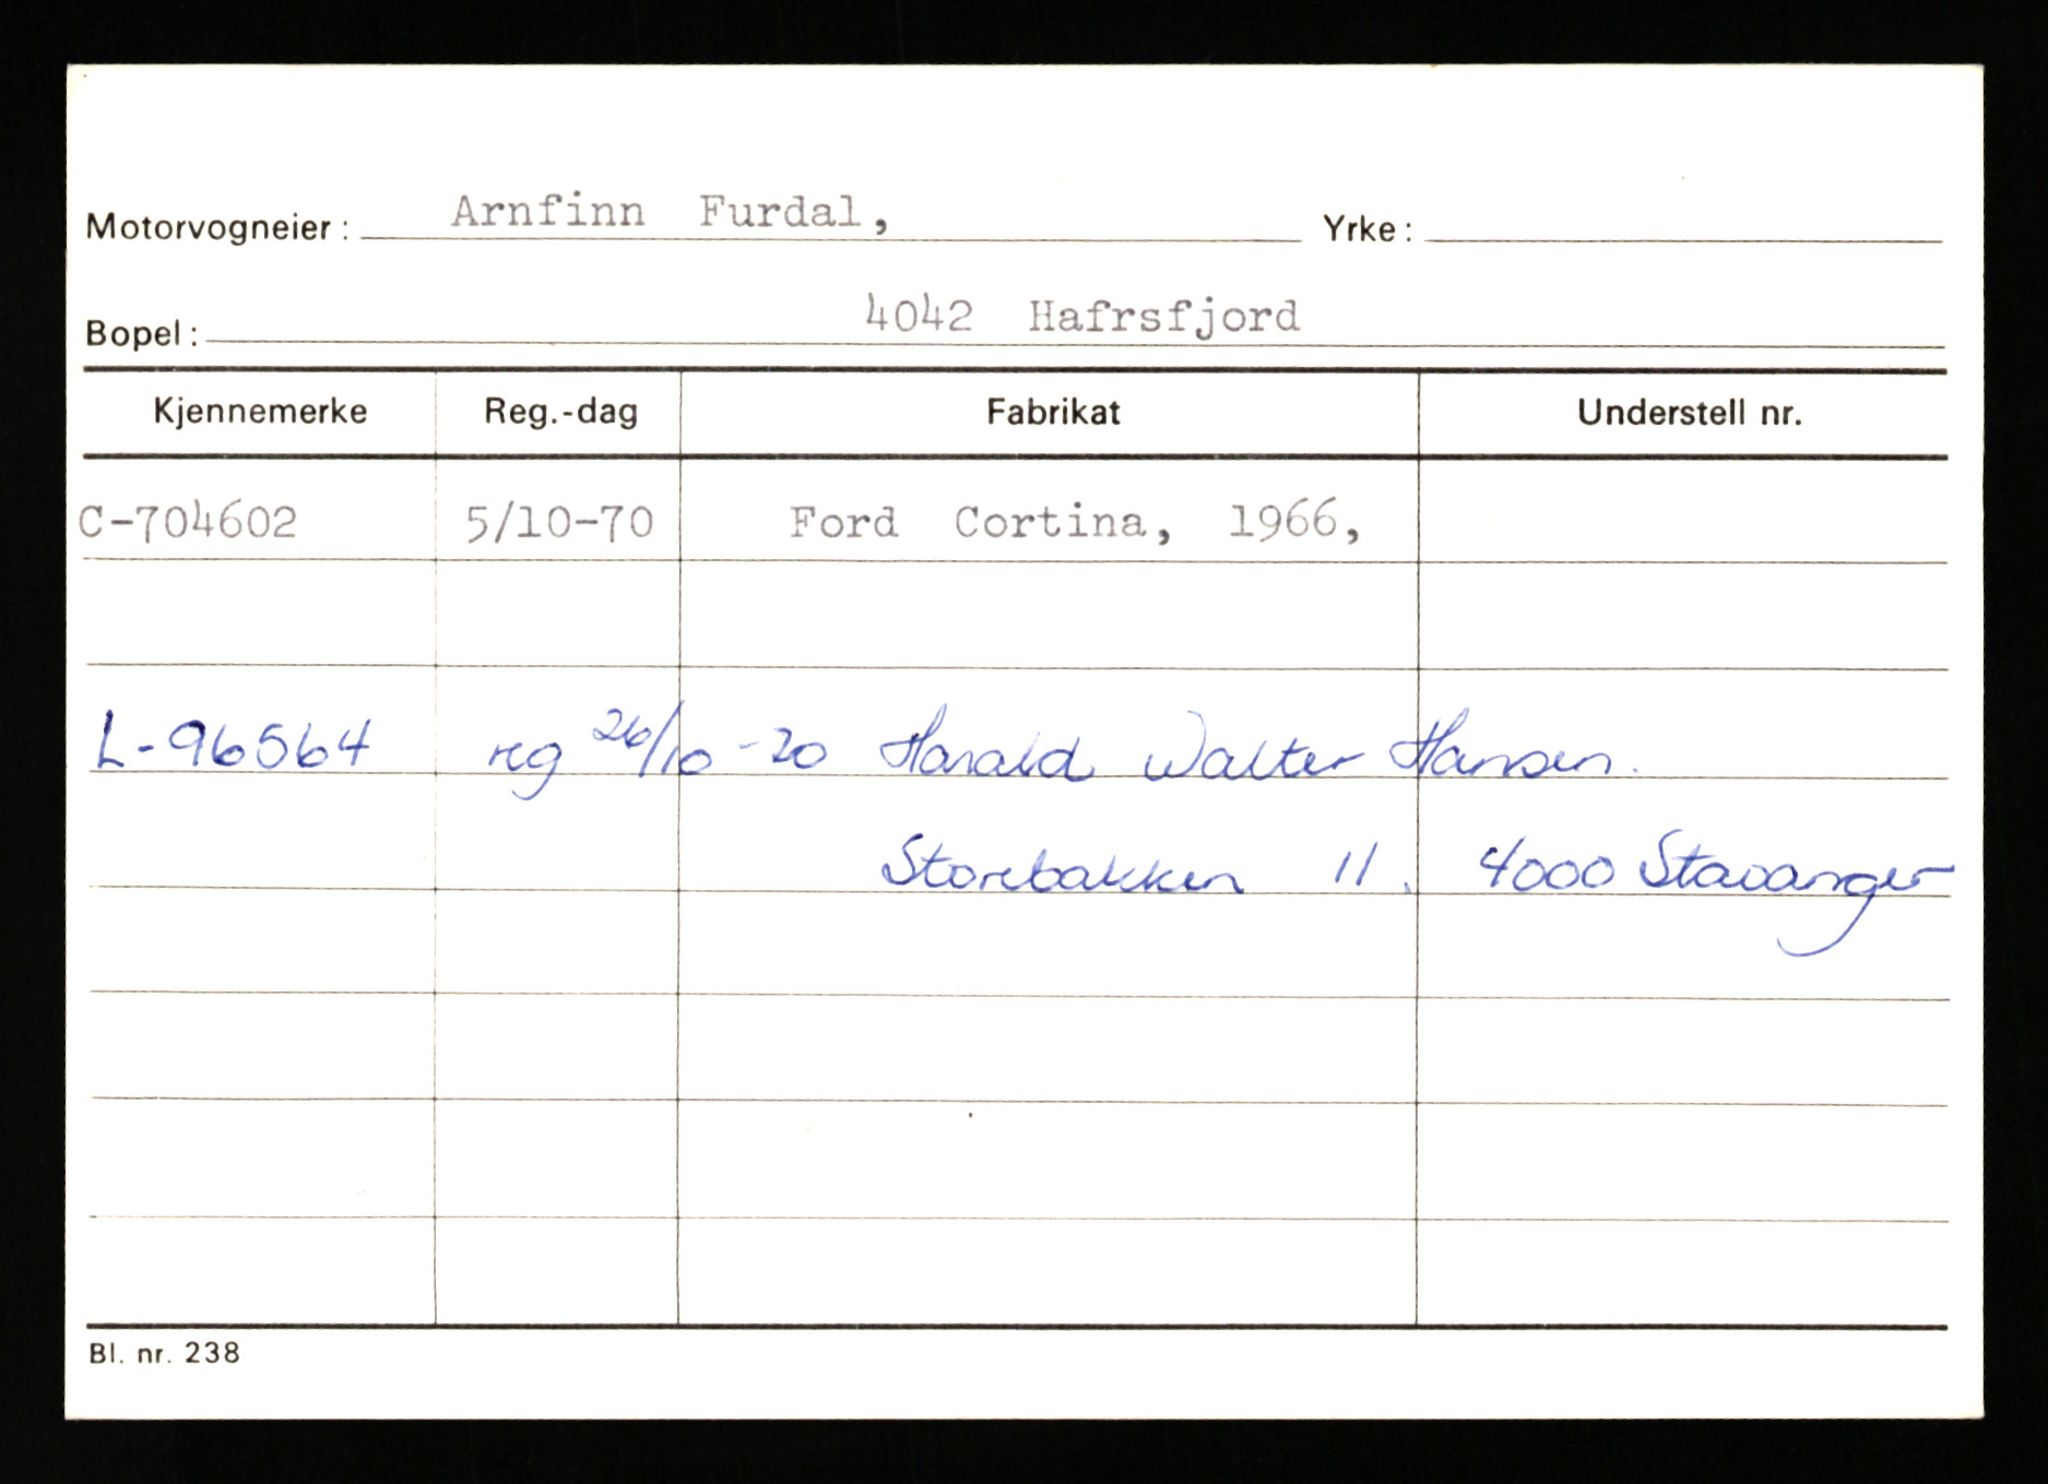 Motorvogneier: Arnfinn Furdal, Yrke:
Bopel: 4042 Hafrsfjord
Kjennemerke Reg.-dag Fabrikat Understell nr.
C-704602 5/10-70 Ford Cortina, 1966,
L-96564 reg 26/10-70 Harald Walter Hansen.
Storebakken 11. 4000 Stavanger
Bl. nr. 238